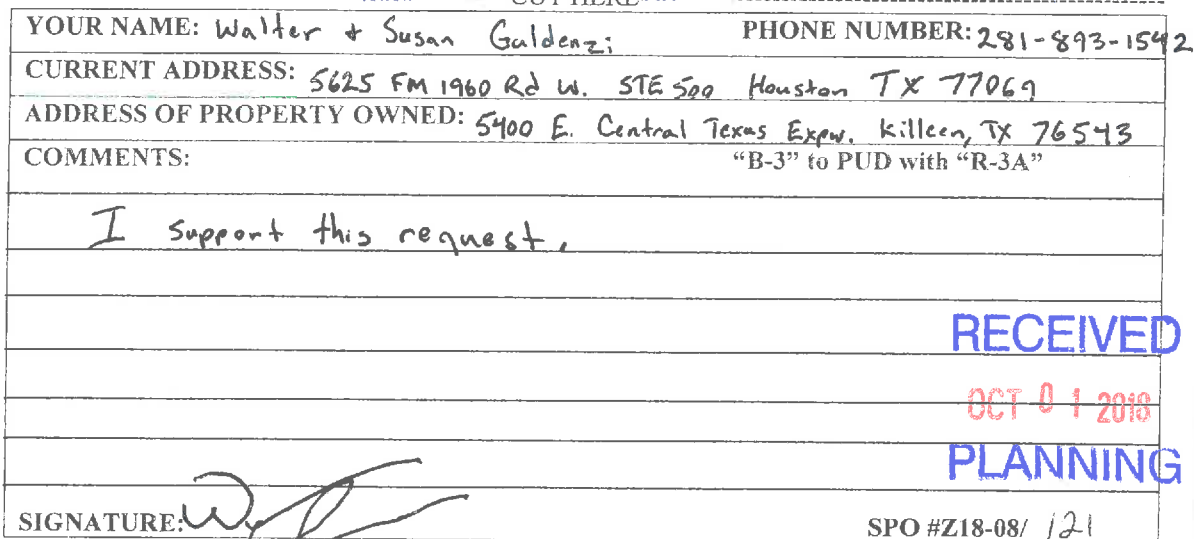 CUT HERE
YOUR NAME: Walter + Susan Galdenzi PHONE NUMBER: 281-893-1542
CURRENT ADDRESS: 5625 FM 1960 Rd W. STE 500 Houston TX 77069
ADDRESS OF PROPERTY OWNED: 5400 E. Central Texas Expw. Killeen, TX 76543
COMMENTS: "B-3" to PUD with "R-3A"
I support this request.
RECEIVED
OCT 01 2018
PLANNING
SIGNATURE:
SPO #Z18-08/ 121